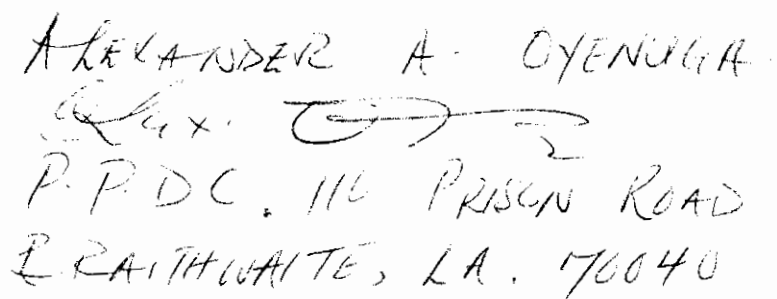 ALEXANDER A. OYENUGA
Alex.
P.P.D C. 110 PRISON ROAD
BRAITHWAITE, LA. 70040